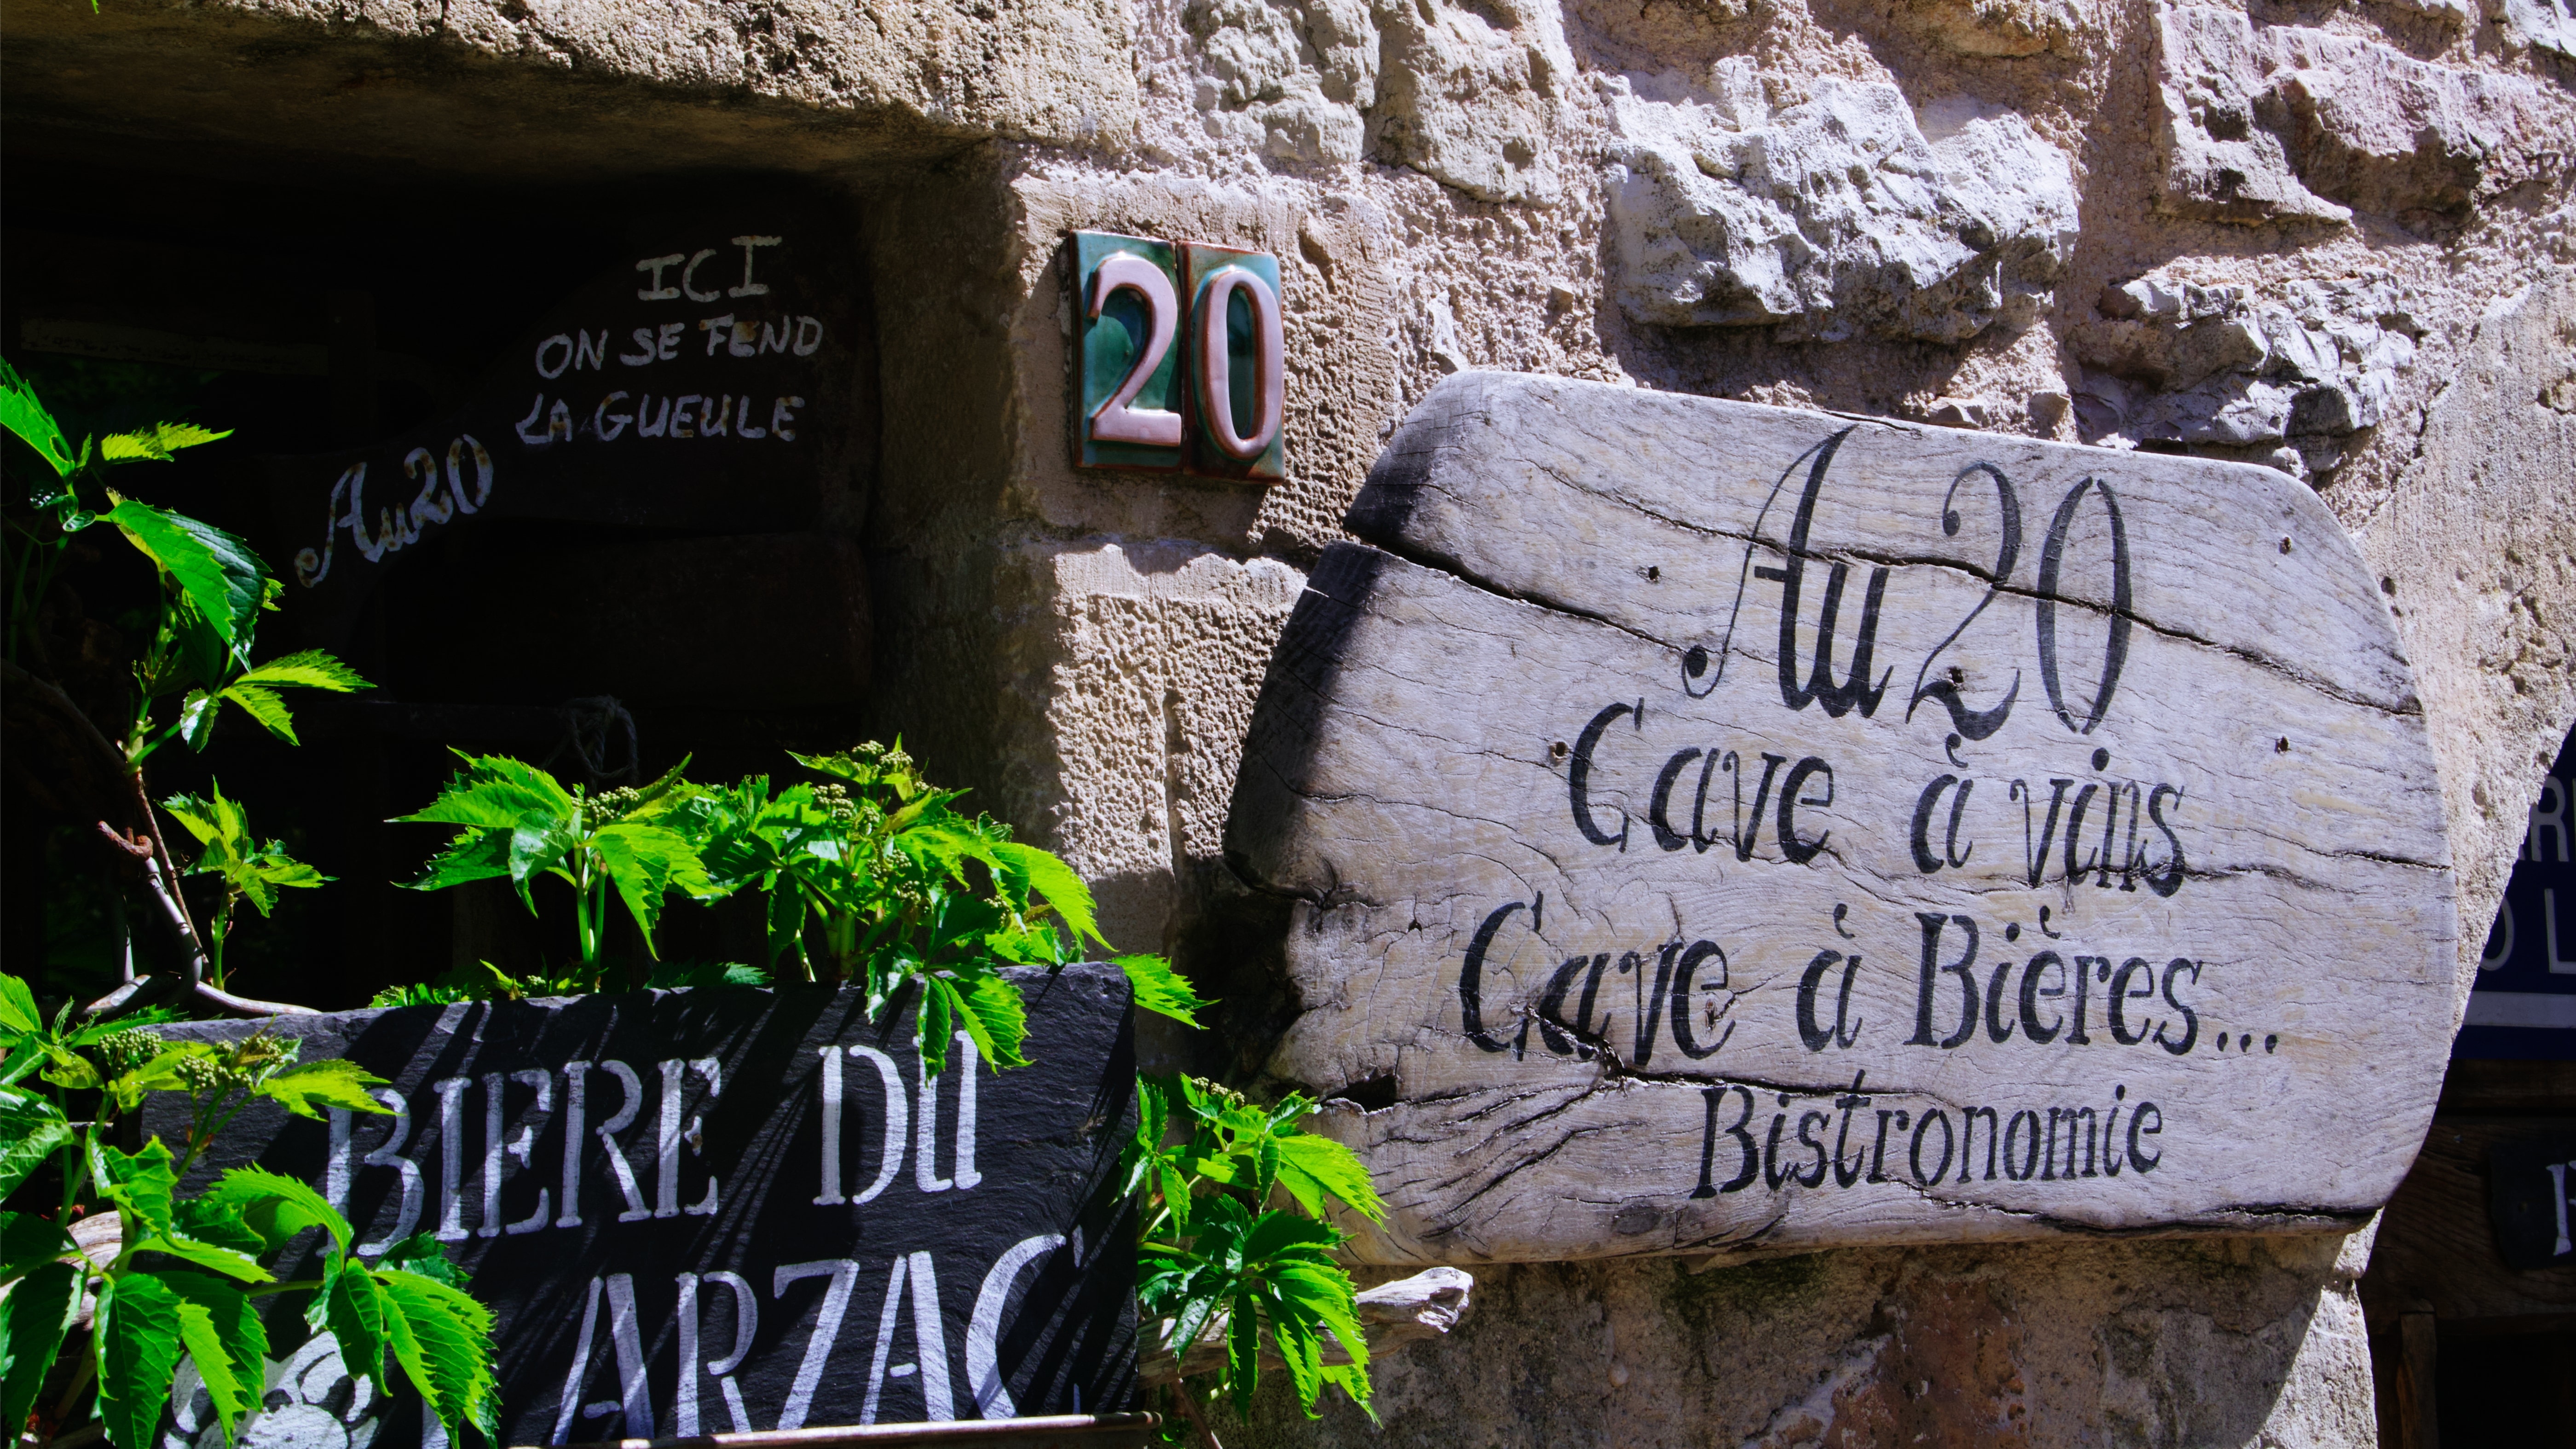 ICI
ON SE FEND
LA GUEULE
Au20
20
Au 20
Cave à vins
Cave à Bières...
Bistronomie
BIERE DU
LARZAC